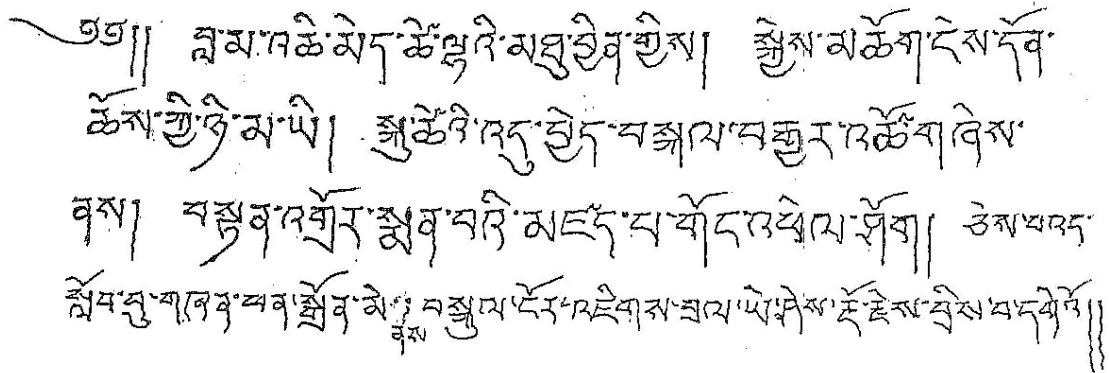 ༄༅།། བླ་མ་འཆི་མེད་ཚེ་ལྷའི་མཐུ་བྱིན་གྱིས། སྐྱེས་མཆོག་ངེས་དོན་
ཆོས་ཀྱི་ཉི་མ་ཡི། སྐུ་ཚེའི་འདུ་བྱེད་བསྐལ་བརྒྱར་འཚོ་བཞེས་
ནས། བསྟན་འགྲོར་སྨན་པའི་མཛད་པ་གོང་འཕེལ་ཤོག། ཅེས་པའང་
སློབ་བུ་གཞན་ཕན་སྒྲོན་མེ་ནས་བསྐུལ་ངོར་འཇིགས་བྲལ་ཡེ་ཤེས་རྡོ་རྗེས་བྲིས་པ་དགེའོ།།